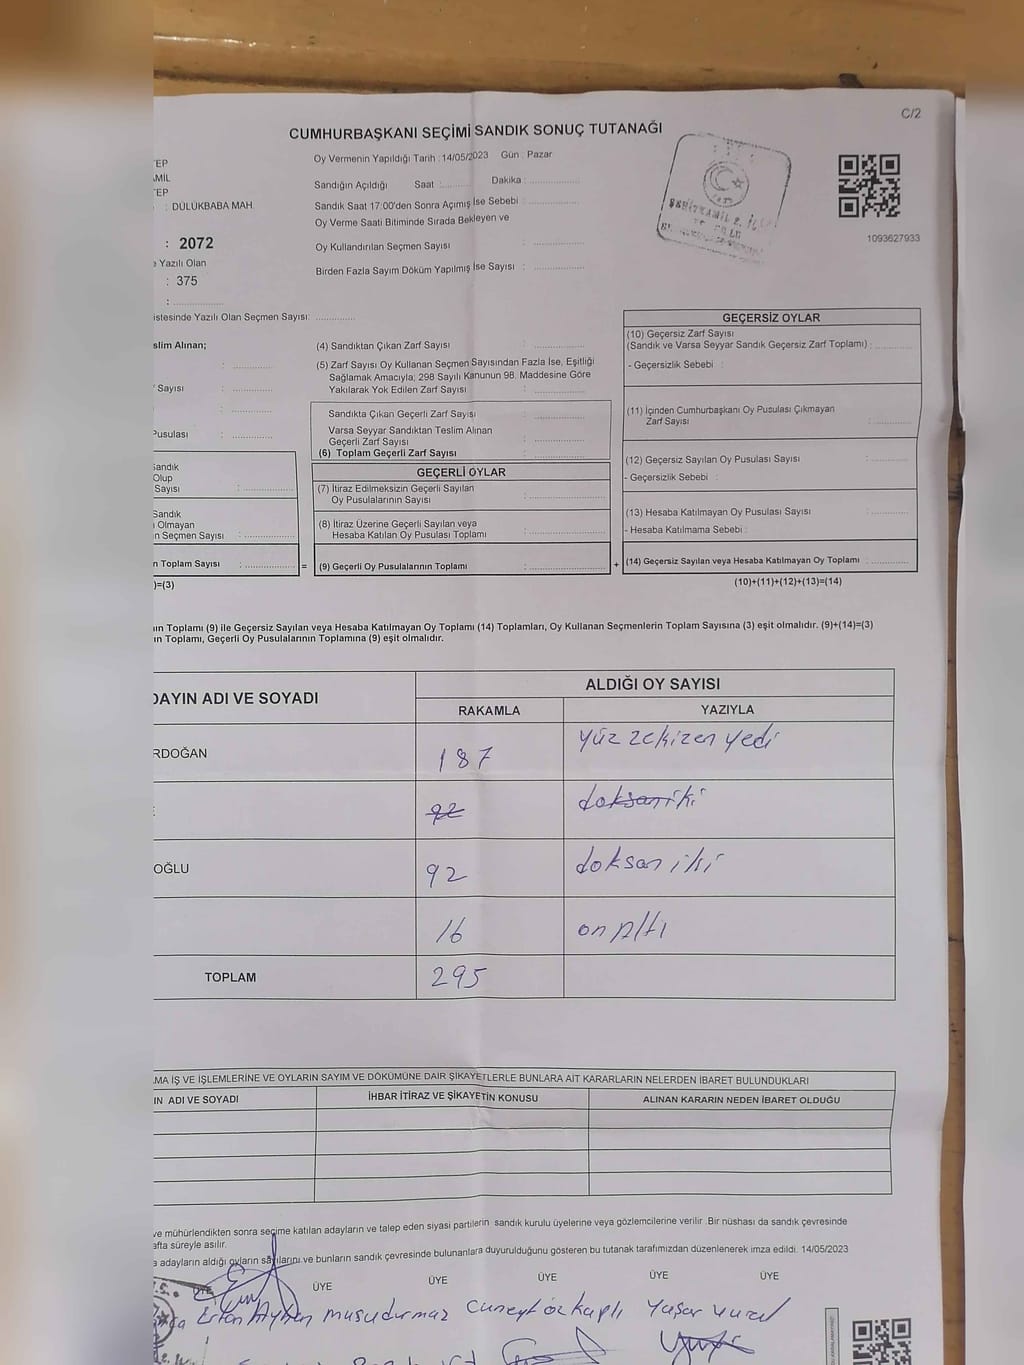 C/2
CUMHURBAŞKANI SEÇİMİ SANDIK SONUÇ TUTANAĞI
TEP
Oy Vermenin Yapıldığı Tarih : 14/05/2023 Gün : Pazar
AMİL
TEP
Sandığın Açıldığı Saat : Dakika :
: DÜLÜKBABA MAH.
Sandık Saat 17:00'den Sonra Açımış İse Sebebi :
Oy Verme Saati Bitiminde Sırada Bekleyen ve
: 2072
Oy Kullandırılan Seçmen Sayısı :
1093627933
e Yazılı Olan
: 375
Birden Fazla Sayım Döküm Yapılmış İse Sayısı :
istesinde Yazılı Olan Seçmen Sayısı:
slim Alınan;
Sayısı :
Pusulası :
Sandık
Olup
Sayısı :
Sandık
ı Olmayan
n Seçmen Sayısı :
n Toplam Sayısı :
)=(3)
(4) Sandıktan Çıkan Zarf Sayısı :
(5) Zarf Sayısı Oy Kullanan Seçmen Sayısından Fazla İse, Eşitliği
Sağlamak Amacıyla; 298 Sayılı Kanunun 98. Maddesine Göre
Yakılarak Yok Edilen Zarf Sayısı :
Sandıkta Çıkan Geçerli Zarf Sayısı :
Varsa Seyyar Sandıktan Teslim Alınan
Geçerli Zarf Sayısı :
(6) Toplam Geçerli Zarf Sayısı :
GEÇERLİ OYLAR
(7) İtiraz Edilmeksizin Geçerli Sayılan
Oy Pusulalarının Sayısı :
(8) İtiraz Üzerine Geçerli Sayılan veya
Hesaba Katılan Oy Pusulası Toplamı :
= (9) Geçerli Oy Pusulalarının Toplamı : +
GEÇERSİZ OYLAR
(10) Geçersiz Zarf Sayısı
(Sandık ve Varsa Seyyar Sandık Geçersiz Zarf Toplamı) :
- Geçersizlik Sebebi :
(11) İçinden Cumhurbaşkanı Oy Pusulası Çıkmayan
Zarf Sayısı :
(12) Geçersiz Sayılan Oy Pusulası Sayısı :
- Geçersizlik Sebebi :
(13) Hesaba Katılmayan Oy Pusulası Sayısı :
- Hesaba Katılmama Sebebi :
(14) Geçersiz Sayılan veya Hesaba Katılmayan Oy Toplamı :
(10)+(11)+(12)+(13)=(14)
ın Toplamı (9) ile Geçersiz Sayılan veya Hesaba Katılmayan Oy Toplamı (14) Toplamları, Oy Kullanan Seçmenlerin Toplam Sayısına (3) eşit olmalıdır. (9)+(14)=(3)
ın Toplamı, Geçerli Oy Pusulalarının Toplamına (9) eşit olmalıdır.
DAYIN ADI VE SOYADI
ALDIĞI OY SAYISI
RAKAMLA YAZIYLA
RDOĞAN 187 yüz zekizen yedi
92 doksaniki
OĞLU 92 doksan iki
16 on Altı
TOPLAM 295
AMA İŞ VE İŞLEMLERİNE VE OYLARIN SAYIM VE DÖKÜMÜNE DAİR ŞİKAYETLERLE BUNLARA AİT KARARLARIN NELERDEN İBARET BULUNDUKLARI
IN ADI VE SOYADI İHBAR İTİRAZ VE ŞİKAYETİN KONUSU ALINAN KARARIN NEDEN İBARET OLDUĞU
ve mühürlendikten sonra seçime katılan adayların ve talep eden siyasi partilerin sandık kurulu üyelerine veya gözlemcilerine verilir .Bir nüshası da sandık çevresinde
afta süreyle asılır.
a adayların aldığı oyların sayılarını ve bunların sandık çevresinde bulunanlara duyurulduğunu gösteren bu tutanak tarafımızdan düzenlenerek imza edildi. 14/05/2023
ÜYE ÜYE ÜYE ÜYE ÜYE ÜYE
Ertan Ayhan musudurmaz Cüneyt özkaplı Yaşar